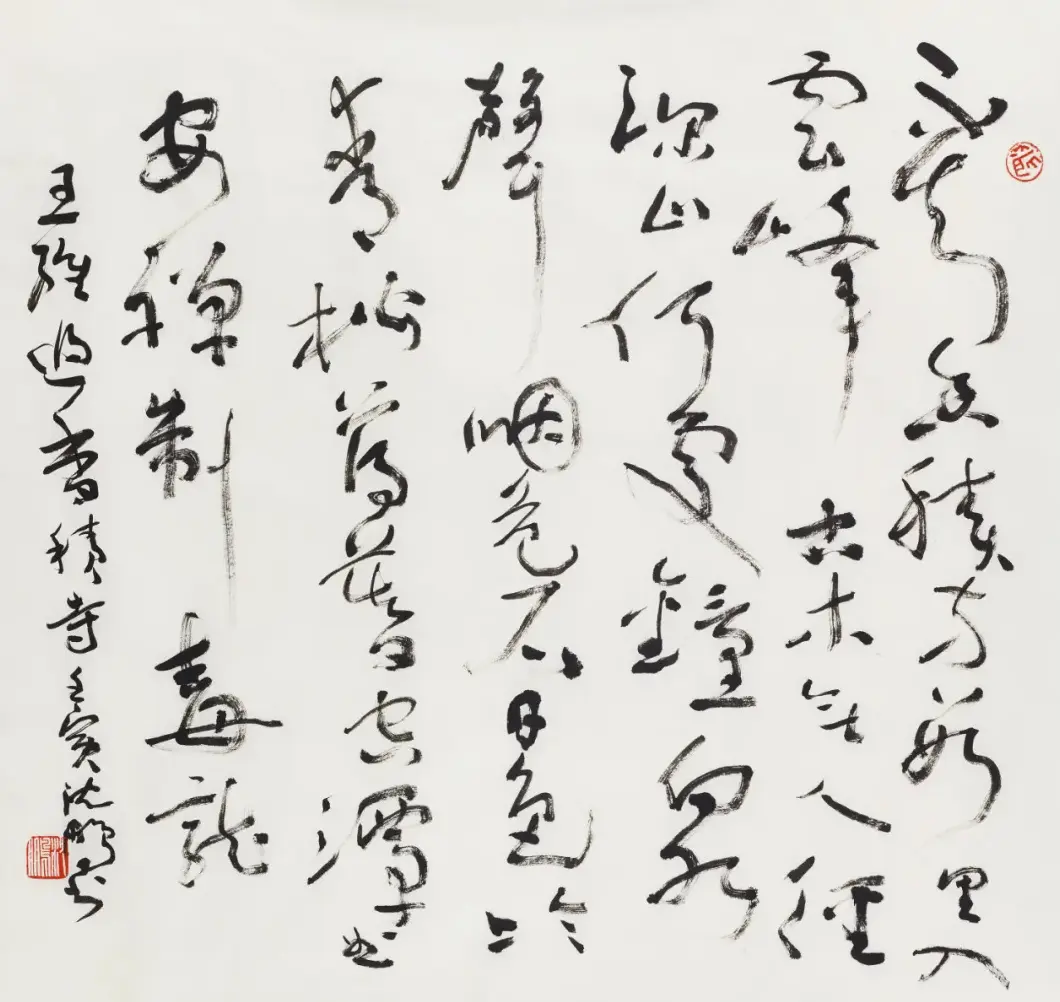 不知香積寺數里入
雲峰古木無人徑
深山何處鐘泉
聲咽危石日色冷
青松薄暮空潭曲
安禪制毒龍
王維過香積寺壬寅沈鵬書